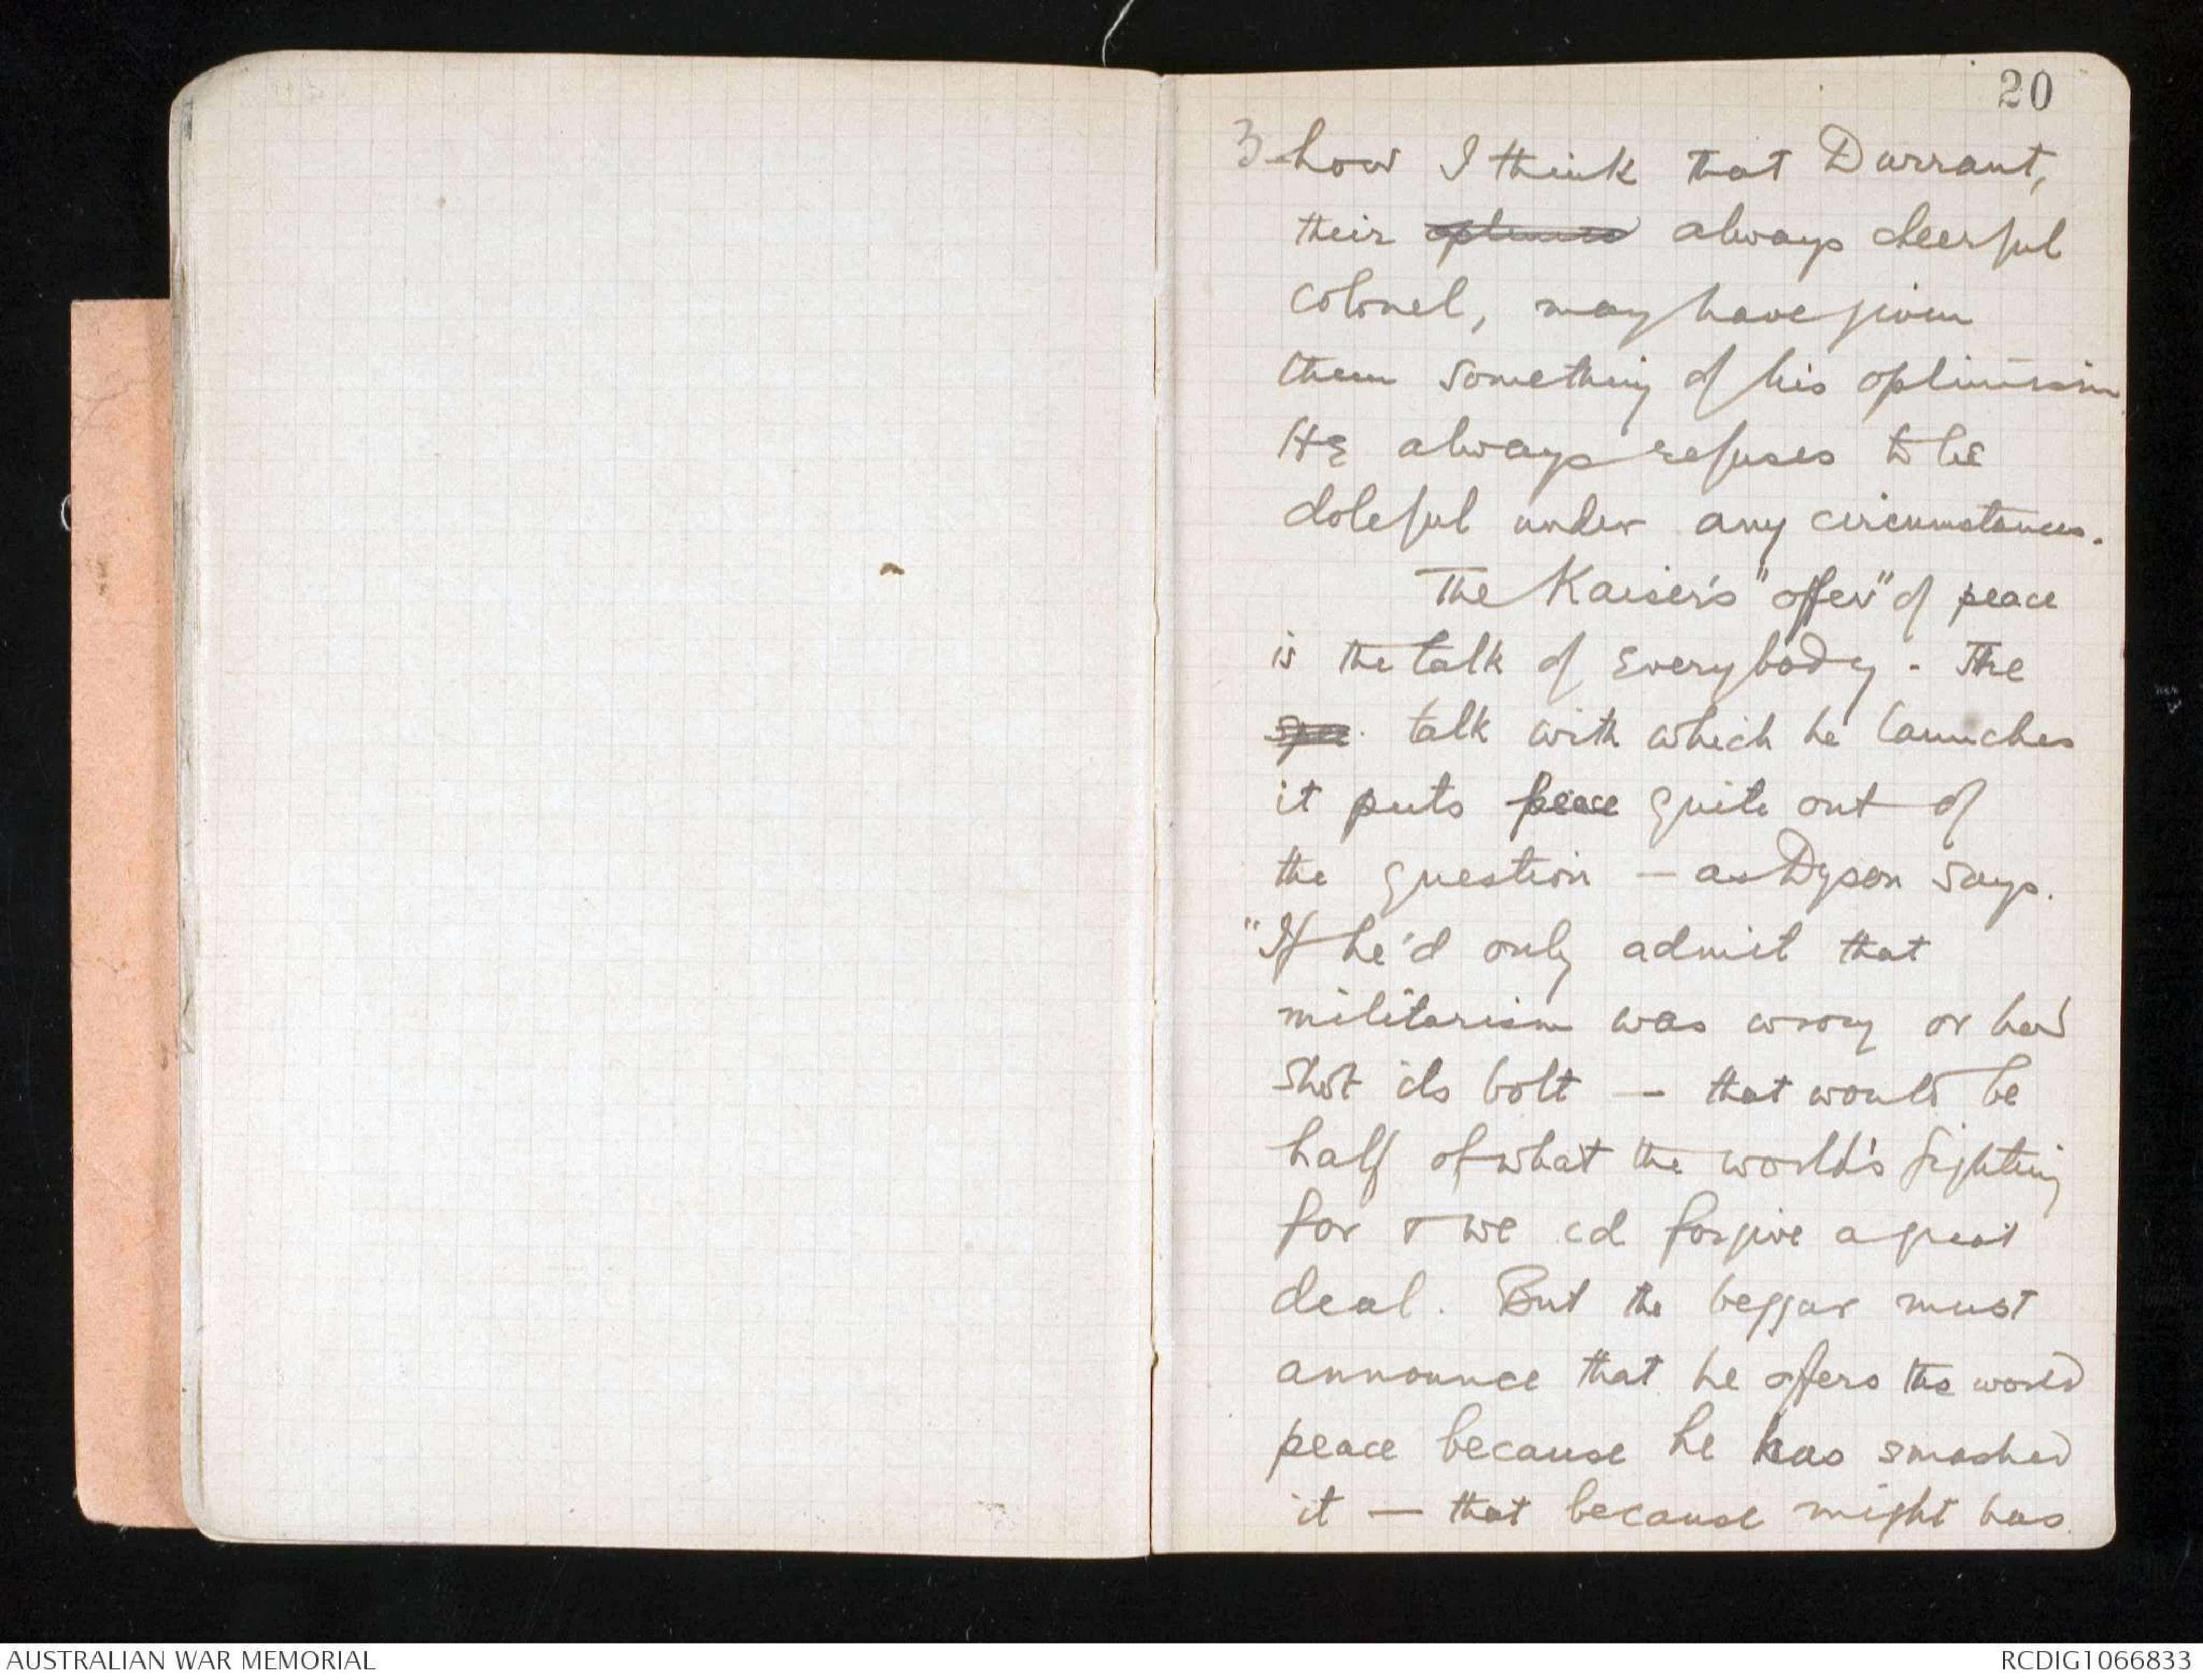 20
3 how I think that Durrant,
their always cheerful
colonel, may have given
them something of his optimism
He always refuses to be
doleful under any circumstances.
The Kaiser's "offer" of peace
is the talk of everybody. The
talk with which he launches
it puts peace quite out of
the question — as Dyson says.
"If he'd only admit that
militarism was wrong or had
shot its bolt — that would be
half of what the world's fighting
for & we cd forgive a great
deal. But the beggar must
announce that he offers the world
peace because he has smashed
it — that because might has
AUSTRALIAN WAR MEMORIAL
RCDIG1066833